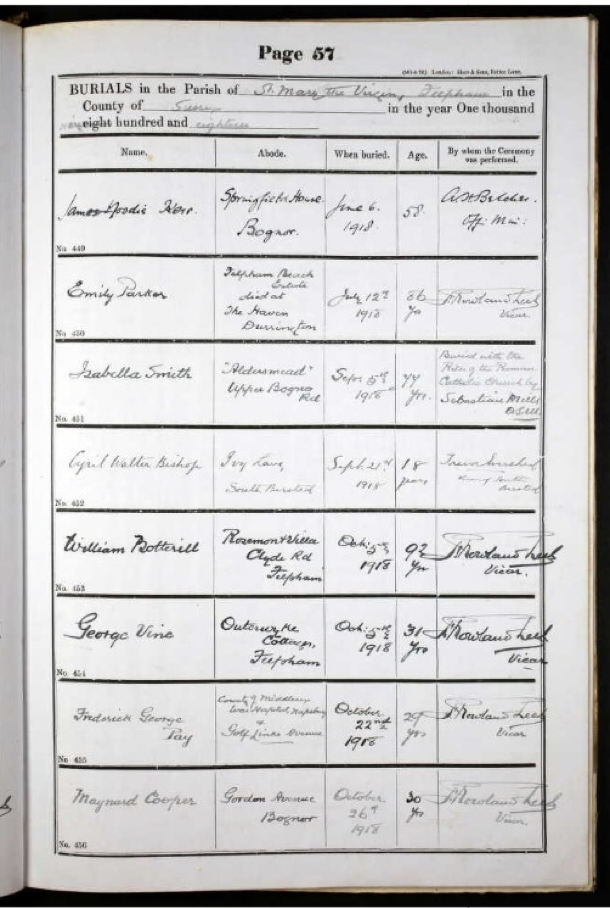 Page 57
BURIALS in the Parish of St. Mary the Virgin, Felpham in the
County of Sussex in the year One thousand
eight hundred and eighteen
Name. Abode. When buried. Age. By whom the Ceremony was performed.
James Kerr.
Springfield House
Bognor.
June 6.
1918.
58.
Offi. Min:
No. 449
Emily Parker
Felpham Beach
Estate
died at
The Haven
Durrington
July 12th
1918
Yrs
Rowland
Vicar.
No. 450
Isabella Smith
"Aldersmead"
Upper Bognor
Rd
Sept. 5th
1918
77
Yrs.
Buried with the
Rites of the Roman
Catholic Church by
Sebastian
No. 451
Cyril Walter Bishop
Ivy Lane,
South Bersted
Sept. 21st
1918
18
years
Vicar of South
Bersted
No. 452
William Botterill
Rosemont Villa
Clyde Rd
Felpham
Oct: 5th
1918
92
Yrs
Rowland
Vicar.
No. 453
George Vine
Cottages,
Felpham
Oct: 5th
1918
31
Yrs
Rowland
Vicar
No. 454
Frederick George
Pay
County of Middlesex
War Hospital Napsbury
&
Golf Links Avenue
October
22nd
1918
29
yrs
Rowland
Vicar
No. 455
Maynard Cooper
Gordon Avenue
Bognor
October
26th
1918
30
Yrs
Rowland
Vicar.
No. 456